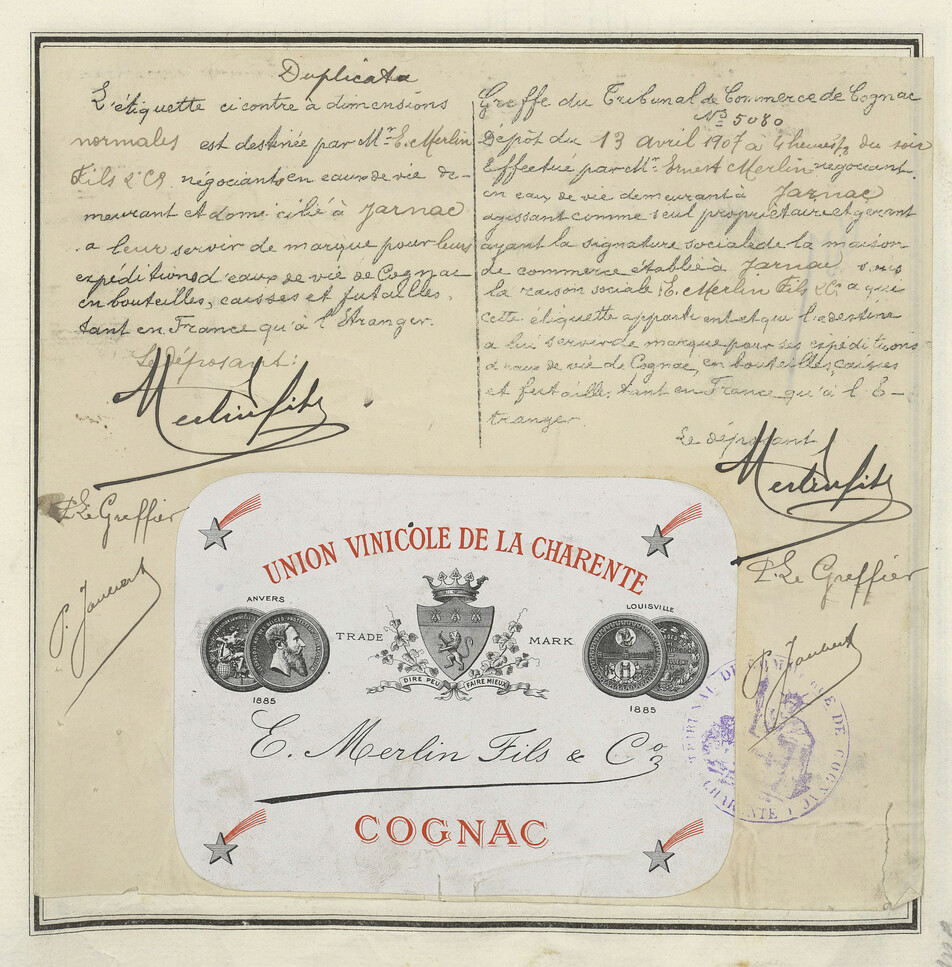 Duplicata
L'étiquette ci contre à dimensions
normales est destinée par Mr E. Merlin
Fils & Co, négociants en eaux de vie de-
meurant et domicilié à Jarnac
a leur servir de marque pour leurs
expéditions d'eaux de vie de Cognac
en bouteilles, caisses et futailles,
tant en France qu'à l'Etranger.
Le déposant:
Merlin fils
P. Le Greffier
P. Jaubert
Greffe du Tribunal de Commerce de Cognac
No 5080
Dépôt du 13 avril 1907 à 4 heures ½ du soir
Effectué par Mr Ernest Merlin négociant
en eaux de vie demeurant à Jarnac
agissant comme seul propriétaire et gérant
ayant la signature sociale de la maison
de commerce établie à Jarnac sous
la raison sociale: E. Merlin Fils & Co a qui
cette étiquette appartient et qui l'a destine
a lui servir de marque pour ses expéditions
d'eaux de vie de Cognac, en bouteilles, caisses
et futailles, tant en France qu'à l'E-
tranger.
Le déposant
Merlin fils
P. Le Greffier
P. Jaubert
UNION VINICOLE DE LA CHARENTE
ANVERS
1885
TRADE MARK
DIRE PEU FAIRE MIEUX
LOUISVILLE
1885
E. Merlin Fils & Co
COGNAC
TRIBUNAL DE COMMERCE DE COGNAC
CHARENTE